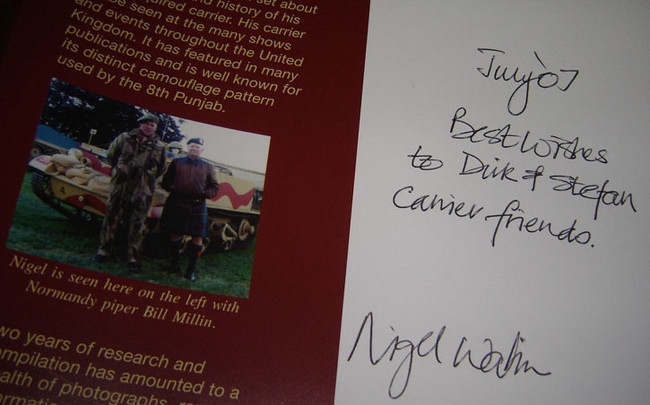 set about
and history of his
acquired carrier. His carrier
be seen at the many shows
and events throughout the United
Kingdom. It has featured in many
publications and is well known for
its distinct camouflage pattern
used by the 8th Punjab.
Nigel is seen here on the left with
Normandy piper Bill Millin.
two years of research and
compilation has amounted to a
wealth of photographs,
July '07
Best Wishes
to Dirk & Stefan
Carrier friends.
Nigel Watson